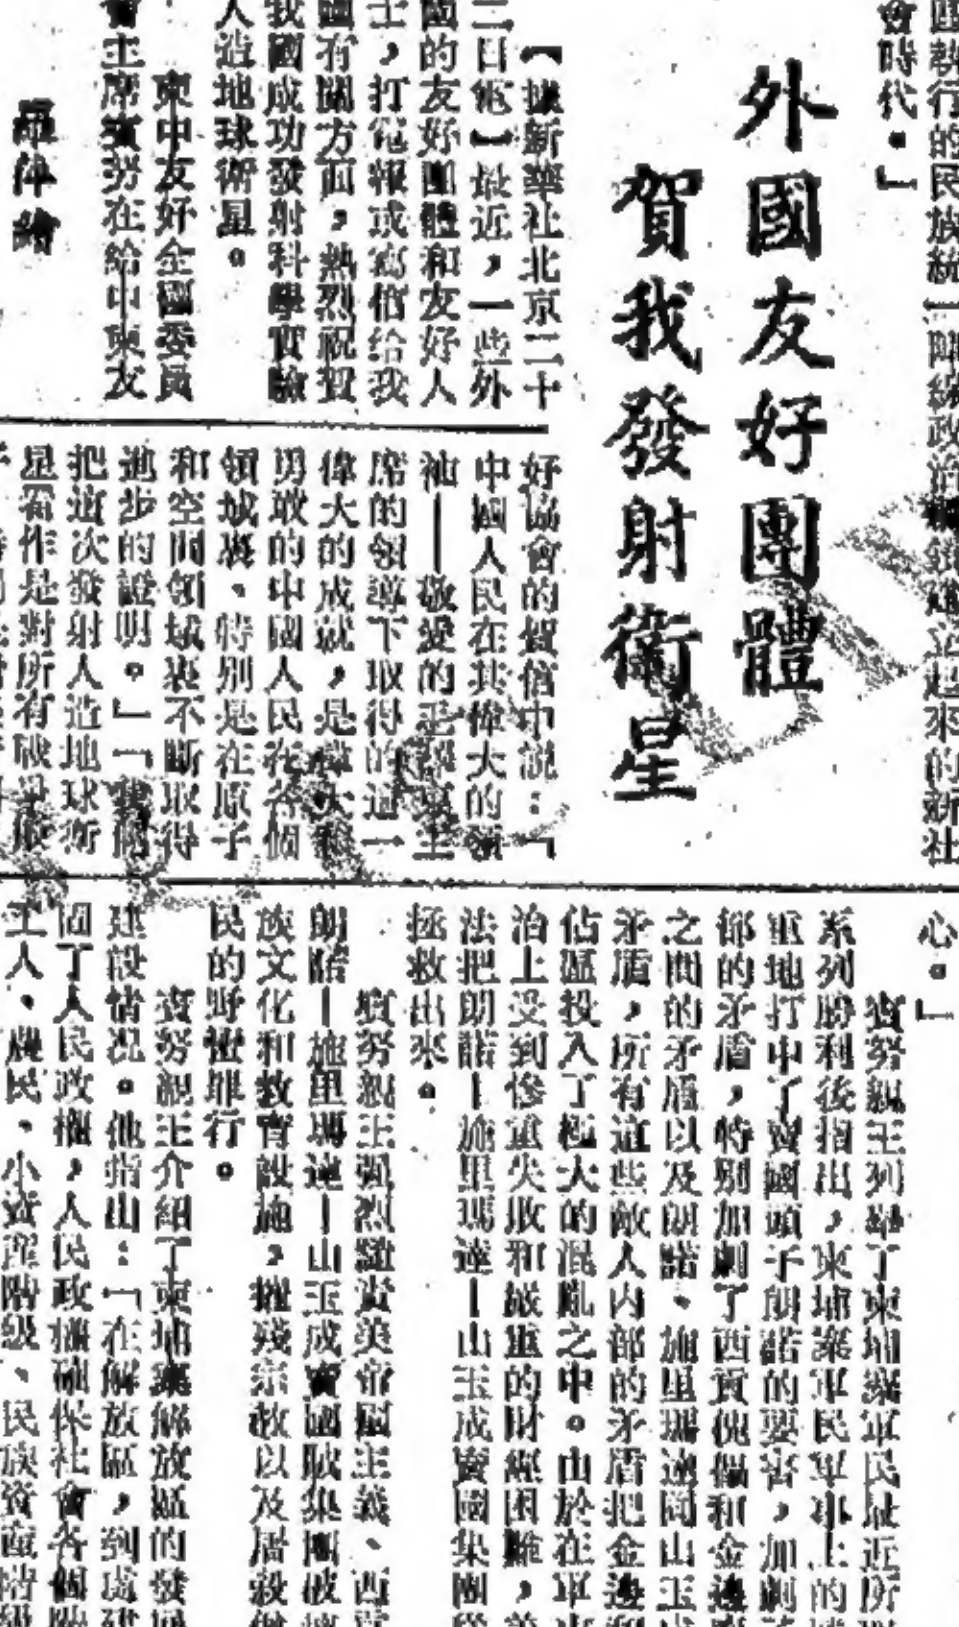 區執行的民族統一陣線政治
起來的新社
會時代。」
外國友好團體
賀我發射衛星
【據新華社北京二十
二日電】最近，一些外
國的友好團體和友好人
士，打電報或寫信給我
國有關方面，熱烈祝賀
我國成功發射科學實驗
人造地球衛星。
柬中友好全國委員
會主席賓努在給中柬友
好協會的賀信中說：「
中國人民在其偉大的領
袖——敬愛的毛澤東主
席的領導下取得的這一
偉大的成就，是偉大和
勇敢的中國人民在各個
領域裏、特別是在原子
和空間領域裏不斷取得
進步的證明。」「我們
把這次發射人造地球衛
星看作是對所有
心。」
賓努親王列舉了柬埔寨軍民最近所
系列勝利後指出，柬埔寨軍民軍事上的
重地打中了賣國頭子朗諾的要害，加劇
部的矛盾，特別加劇了西貢傀儡和金邊
之間的矛盾以及朗諾、施里瑪達同山玉成
矛盾，所有這些敵人內部的矛盾把金邊和
佔區投入了極大的混亂之中。由於在軍事
治上受到慘重失敗和嚴重的財經困難，美
法把朗諾—施里瑪達—山玉成賣國集團從
拯救出來。
賓努親王強烈譴責美帝國主義、西貢
朗諾—施里瑪達—山玉成賣國賊集團破壞
族文化和教育設施，摧殘宗教以及屠殺
民的野蠻罪行。
賓努親王介紹了柬埔寨解放區的發展
建設情况。他指出：「在解放區，到處建
固了人民政權，人民政權確保社會各個階
工人、農民、小資產階級、民族資產階級